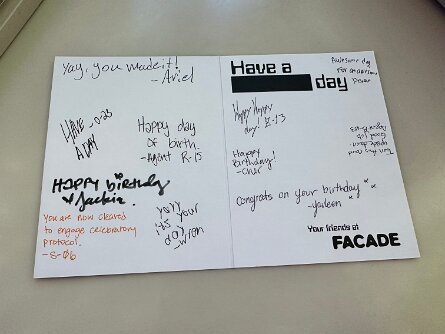 Yay, you made it!
- Ariel
HAVE
A DAY
- O-23
Happy day
of birth.
- Agent R-15
HAPPY birthday
- Jackie
You are now cleared
to engage celebratory
protocol.
- S-06
yayy
it's your
day
- wren
Have a
day
Awesome day
for an awesome
person
Happy Happy
day. E-13
Happy
Birthday!
Turn this card
upside down
Good job
Congrats on your birthday
Your friends at
FACADE